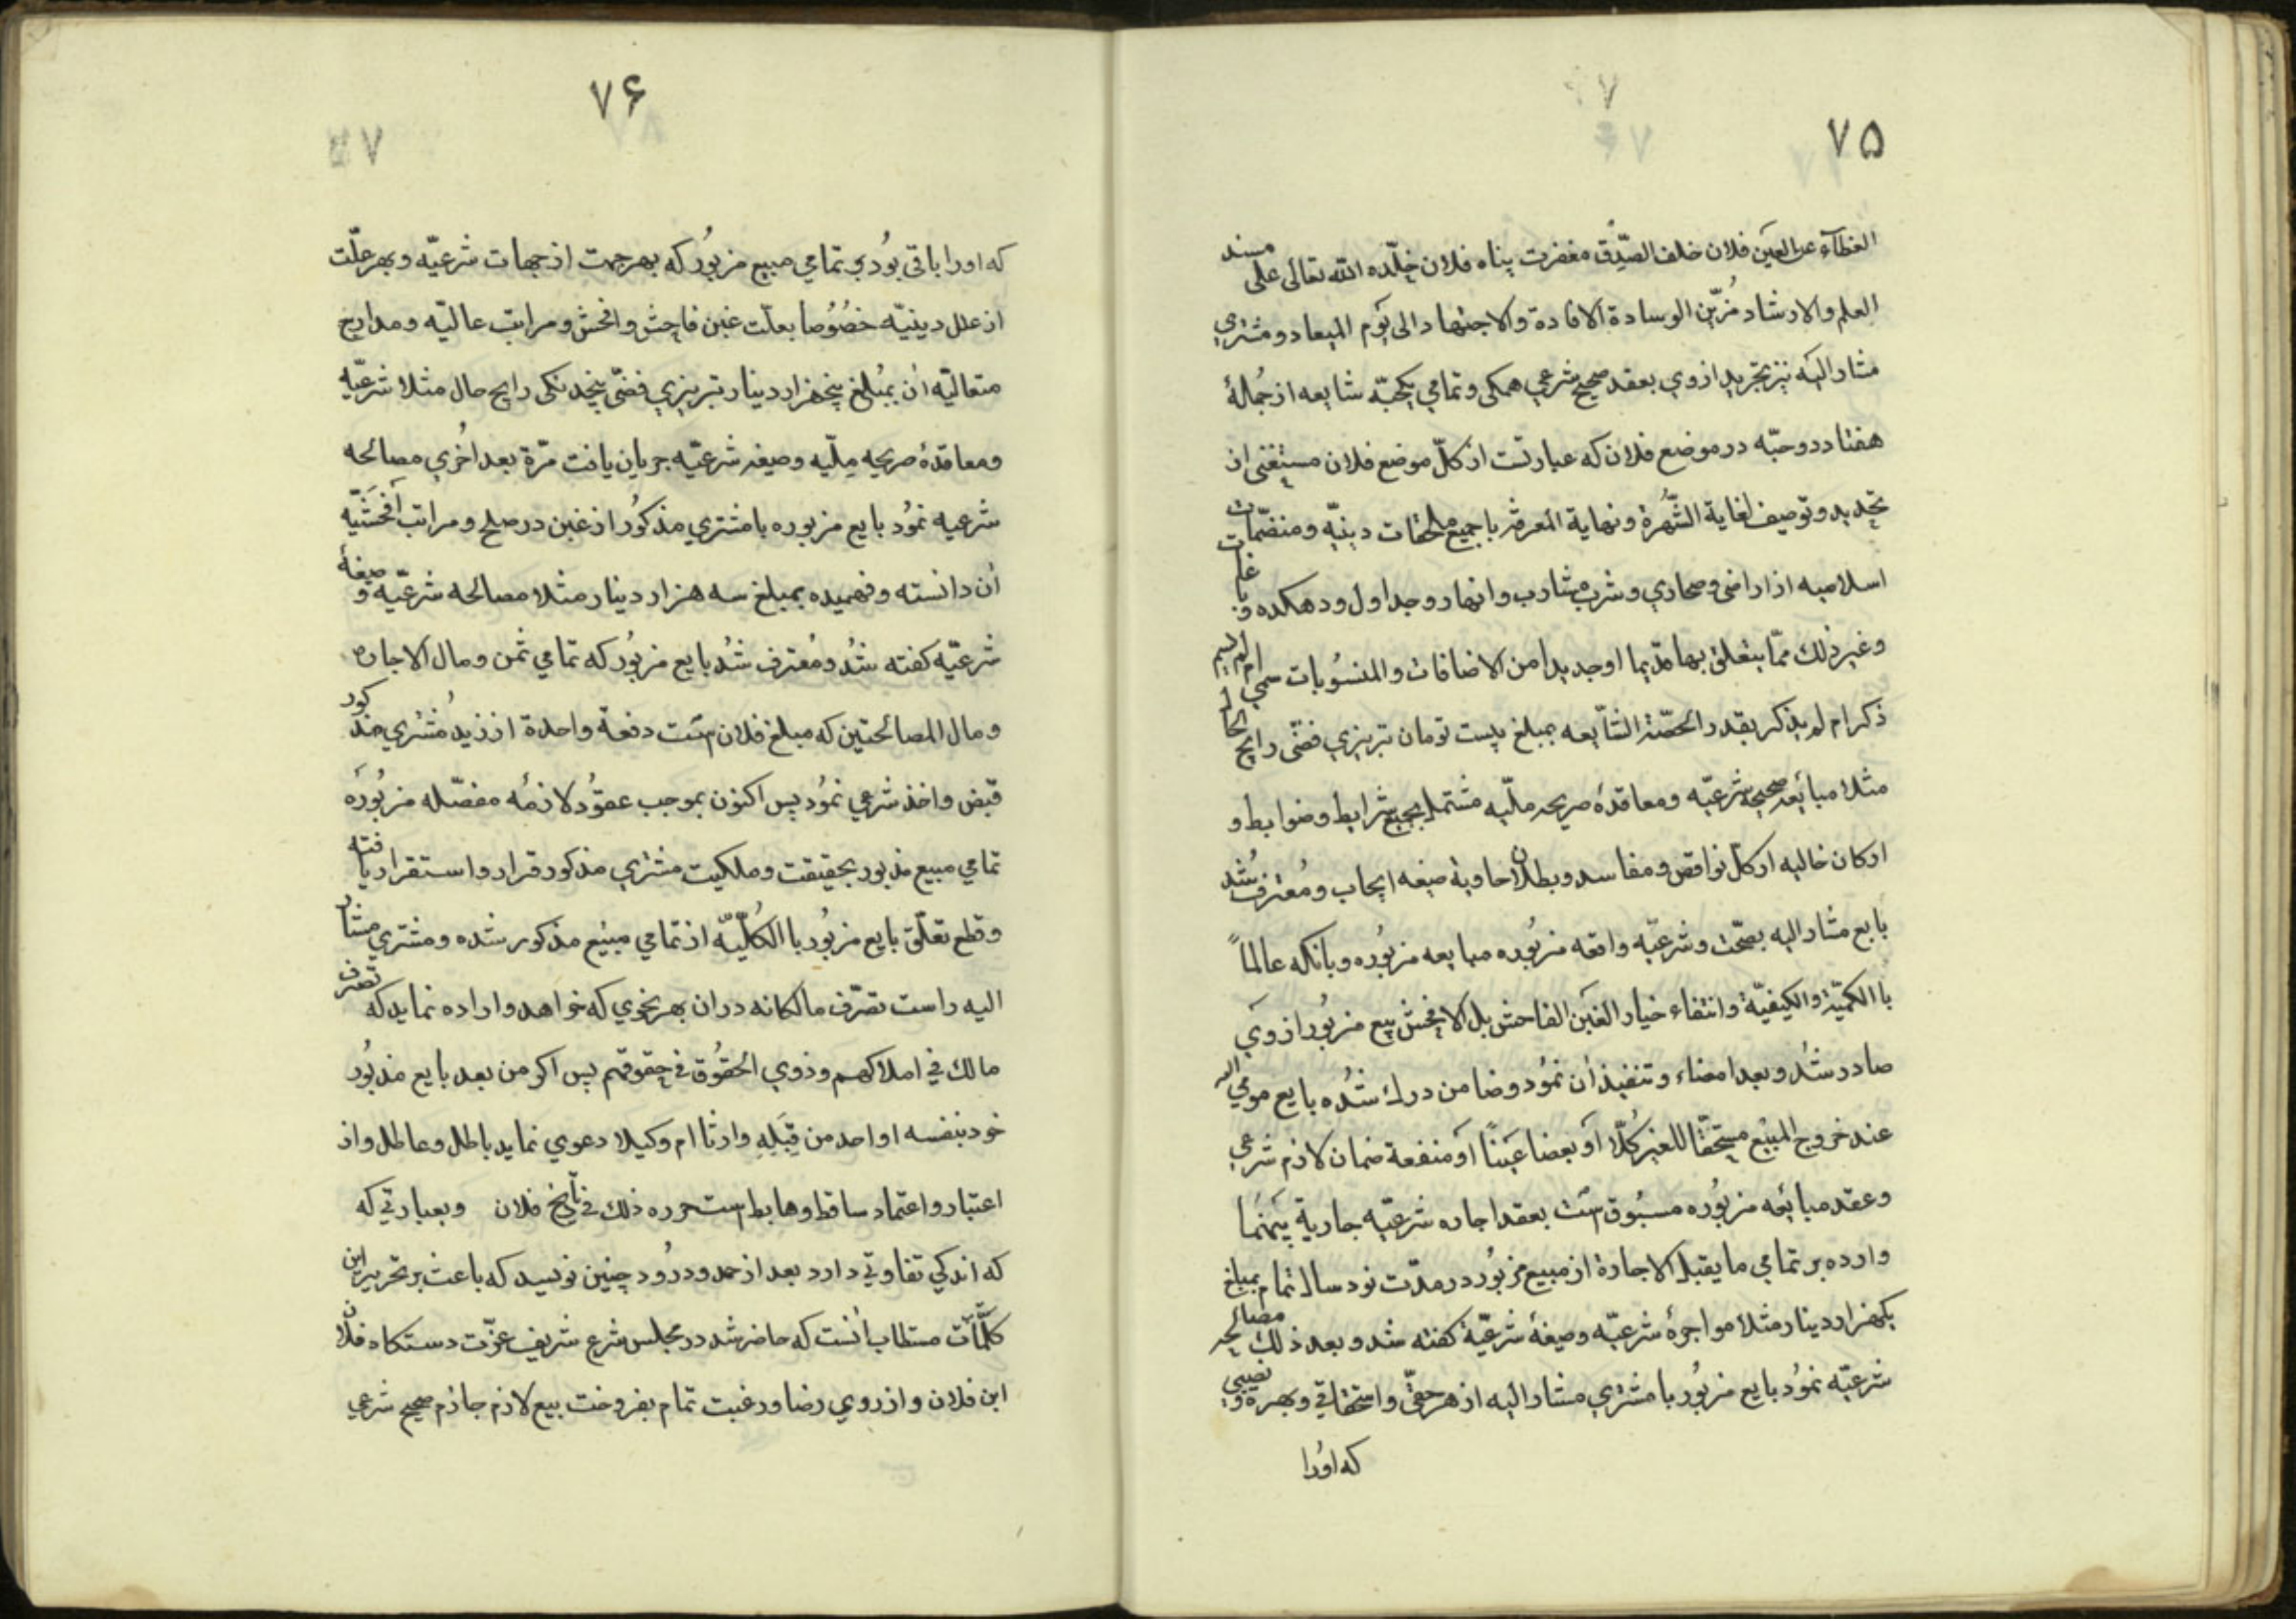 ۷۵
الغطآء عن العین فلان خلف الصّدّیق مغفرت پناه فلان خلّده الله تعالی علی مسند
العلم والارشاد مُزیّن الوسادة الافادة والاجتهاد الی یَوم المیعاد و مشتري
مشار الیه نیز بخرید ازوي بعقد صحیح شرعي همکی و تمامي یکحبّه شایعه از جُملهٔ
هفتاد دو حبّه در موضع فلان که عبارتست از کلّ موضع فلان مستغنی از
تحدید و توصیف لغایة الشّهرة و نهایة المعرفة با جمیع ملحقات دینیّه و منضمّات
اسلامیه از اراضی و صحاري و شرب مشارب و انهار و جداول و دهکده و باغات
وغیر ذلك ممّا یتعلق بها قدیما او جدیدا من الاضافات والمنسُوبات سمي ام لم یسم
ذکر ام لم یذکر بقدر الحصّة الشایعه بمبلغ بیست تومان تبریزي فضّی رایج الحال
مثلا مبایعه صحیحه شرعیّه و معاقدهٔ صریحه ملّیه مشتمله بجمیع شرایط و ضوابط و
ارکان خالیه از کل نواقص و مفاسد و بطلان حاویة صیغه ایجاب و مُعترف شُد
بایع مشار الیه بصحّت و شرعیّه واقعه مزبُوره مبایعه مزبُوره و بآنکه عالماً
با الکمیّة والکیفیّة وانتفاء خیار الغَبن الفاحش بل الافحش بیع مزبُور ازوَي
صادر شُد و بعد امضاء و تنفیذ اٰن نمُود و ضامن درك شُده بایع مومي الیه
عند خروج المبیع مستحقّا للغیر کُلّا اَو بعضا عَیناً اَو منفعة ضمان لازم شرعي
وعقد مبایعه مزبُوره مسبُوق است بعقد اجاره شرعیّه جاریة بَینهُما
وارده بر تمامي ما یقبل الاجارة از مبیع مزبُور در مدّت نود سال تمام بمبلغ
یکهزار دینار مثلا مواجرهٔ شرعیّه و صیغهٔ شرعیّة کفته شد و بعد ذلك مصالحه
شرعیّه نمُود بایع مزبُور با مشتري مشار الیه از هر حقّي و استحقاقي و بهره و نصیبي
که اوُرا
۷۶
که اورا باقی بُودي تمامي مبیع مزبُور که بهر جهت از جهات شرعیّه و بهر علّت
از علل دینیّه خصُوصا بعلّت غبن فاحش و افحش و مراتب عالیّه و مدارج
متعالیّه اٰن بمُبلغ پنجهزار دینار تبریزي فضّی پنجدنکی رایج حال مثلا شرعیّه
ومعاقدهٔ صریحه مِلّیه و صیغه شرعیّه جریان یافت مرّة بعد اُخري مصالحه
شرعیه نمُود بایع مزبوره با مشتري مذکُور از غبن در صلح و مراتب اَفحَشیّه
اٰن دانسته و فهمیده بمبلغ سه هزار دینار مثلا مصالحه شرعیّه و صیغهٔ
شرعیّه کفته شُد و مُعترف شُد بایع مزبُور که تمامي ثمن و مال الاجاره
و مال المصالحتین که مبلغ فلان است دفعة واحدة از زید مُشتري مذکور
قبض واخذ شرعي نمُود پس اکنون بموجب عقوُد لازمه مفصّله مزبُورَه
تمامي مبیع مذبور بحقیقت و ملکیت مشتري مذکور قرار و استقرار یافته
و قطع تعلّق بایع مزبُور با الکُلّیّه از تمامي مبیَع مذکور شده و مشتري مشار
الیه راست تصرّف مالکانه دران بهر نحوي که خواهد و اراده نماید که تصرف
مالك في املاکهم وذوي الحقُوق في حقوقهم پس اکر من بعد بایع مذبُور
خود بنفسه او احد من قِبَلِهِ وارثا ام وکیلا دعوي نماید باطل و عاطل و از
اعتبار و اعتماد ساقط و هابط است حرره ذلك في تاریخ فلان وبعبارتي که
که اندکي تفاوتي دارد بعد از حمد و درُود چنین نویسد که باعث بر تحریر این
کلمّات مستطاب اٰنست که حاضر شد در مجلس شرع شریف عزّت دستکاه فلان
ابن فلان و از روي رضا و رغبت تمام بفروخت ببیع لازم جازم صحیح شرعي